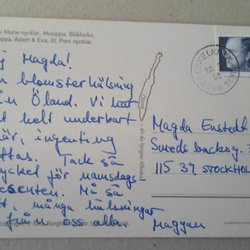 Marie nycklar, Mosippa, Blåklocka,
ippa, Adam & Eva, St. Pers nycklar.
Magda!
blomsterhälsning
ån Öland. Vi har
helt underbart
är, ingenting
ftas. Tack så
ycket för namnsdags
esenten. Må så
t, många hälsningar
från oss alla.
Magyun
Magda Enstedt
115 37 STOCKHOL